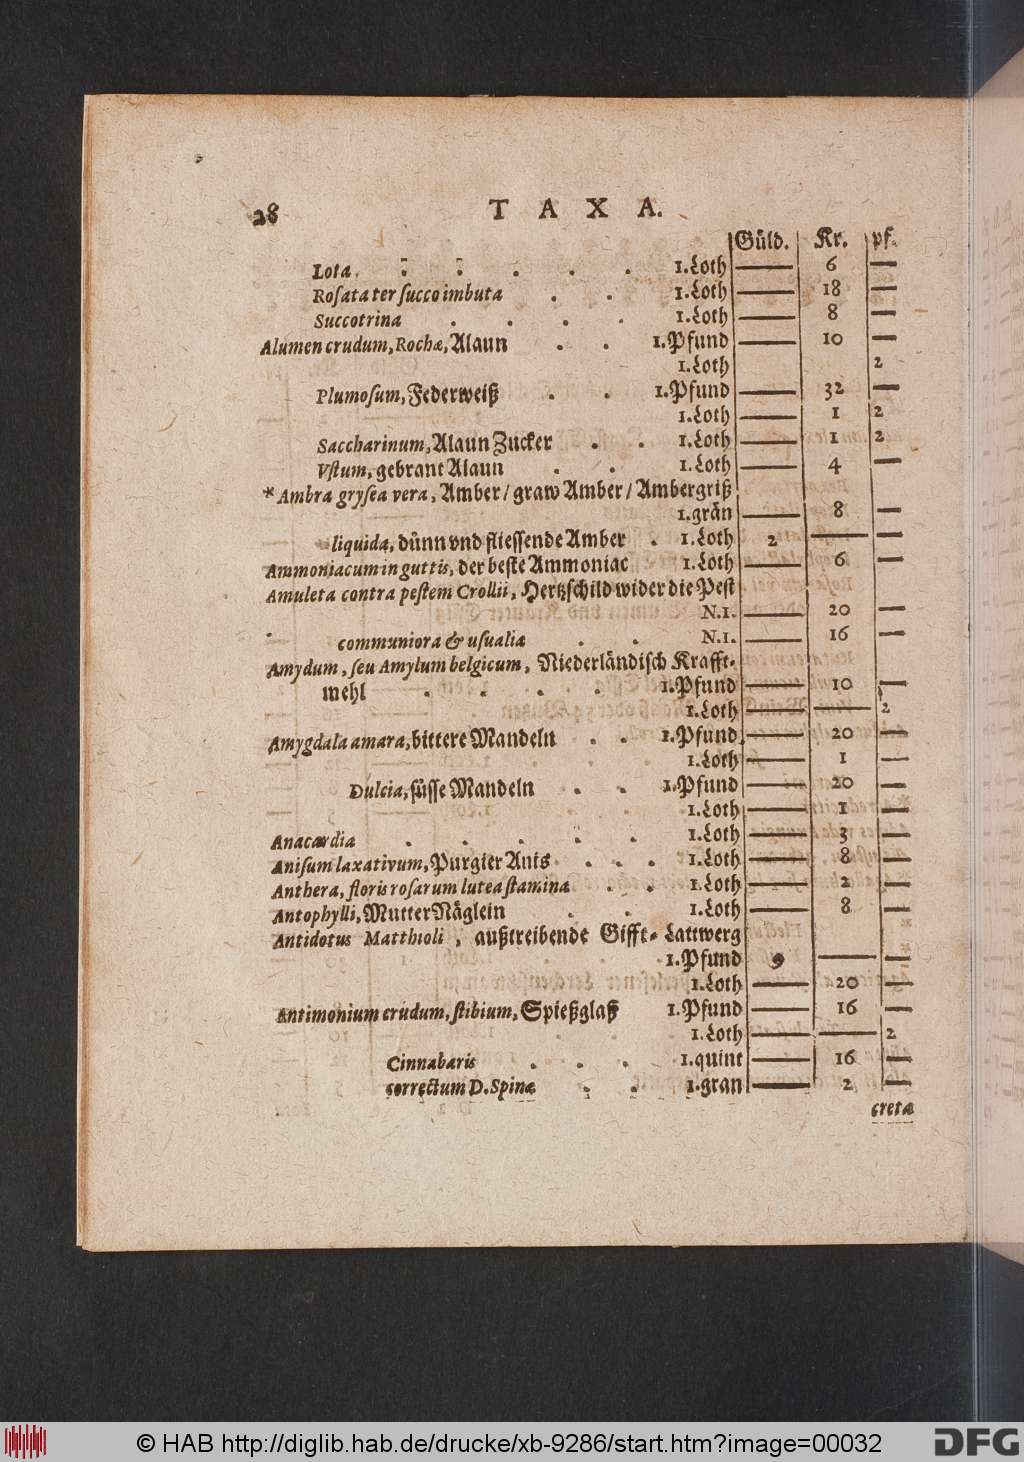 28 TAXA.
Güld. Kr. pf.
Lota . . . . . 1. Loth — 6 —
Rosata ter succo imbuta . . 1. Loth — 18 —
Succotrina . . . . 1. Loth — 8 —
Alumen crudum, Rochæ, Alaun . . 1. Pfund — 10 —
1. Loth 2
Plumosum, Federweiß . . 1. Pfund — 32 —
1. Loth — 1 2
Saccharinum, Alaun Zucker . . 1. Loth — 1 2
Vstum, gebrant Alaun . . 1. Loth — 4 —
* Ambra grysea vera, Amber / graw Amber / Ambergriß
1. grän — 8 —
liquida, dünn vnd fliessende Amber . 1. Loth 2 — —
Ammoniacum in guttis, der beste Ammoniac 1. Loth — 6 —
Amuleta contra pestem Crollii, Hertzschild wider die Pest
N. 1. — 20 —
communiora & usualia . . N. 1. — 16 —
Amydum, seu Amylum belgicum, Niederländisch Krafft-
mehl . . . . 1. Pfund — 10 —
1. Loth — — 2
Amygdala amara, bittere Mandeln . . 1. Pfund — 20 —
1. Loth — 1 —
Dulcia, süsse Mandeln . . 1. Pfund — 20 —
1. Loth — 1 —
Anacardia . . . . . 1. Loth — 3 —
Anisum laxativum, Purgier Anis . . . 1. Loth — 8 —
Anthera, floris rosarum lutea stamina . . 1. Loth — 2 —
Antophylli, Mutter Näglein . . 1. Loth — 8 —
Antidotus Matthioli, außtreibende Gifft-Lattwerg
1. Pfund 9 — —
1. Loth — 20 —
Antimonium crudum, stibium, Spießglaß 1. Pfund — 16 —
1. Loth — — 2
Cinnabaris . . . 1. quint — 16 —
correctum D. Spinæ . . 1. gran — 2 —
cretæ
© HAB http://diglib.hab.de/drucke/xb-9286/start.htm?image=00032 DFG